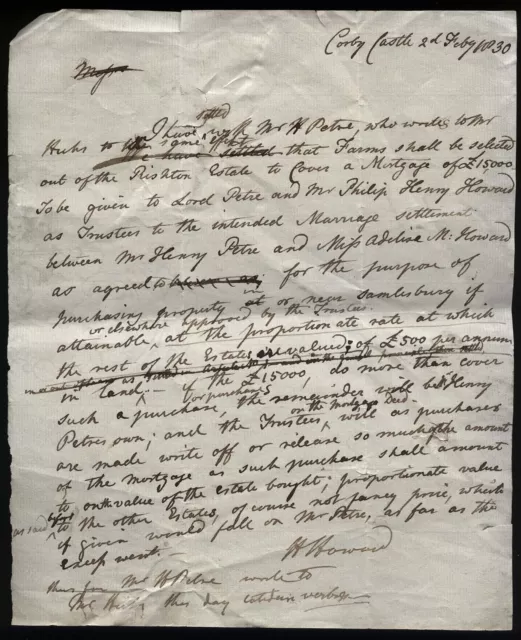 Corby Castle 2d Feby 1830
settled
I have with Mr H Petre, who wrote to Mr
to the same effect
that Farms shall be selected
out of the Rishton Estate to Cover a Mortgage of £15,000
To be given to Lord Petre and Mr Philip Henry Howard
as Trustees to the intended Marriage settlement
between Mr Henry Petre and Miss Adeliza M. Howard
as agreed to for the purpose of
purchasing property in or near Samlesbury if
or elsewhere approved by the Trustees
attainable, at the proportionate rate at which
the rest of the Estates are valued; of £500 per annum
in land — if the £15000, do more than cover
or purchases
such a purchase, the remainder will be Henry
on the Mortgage Deed
Petres own; and the Trustees, will as purchases
are made write off or release so much of the amount
of the mortgage as such purchase shall amount
to on the value of the estate bought; proportionate value
as said before
to the other Estates, of course not fancy price, which
if given would fall on Mr Petre, as far as the
excep went. —
H Howard
thus far Mr H Petre wrote to
Mr this day